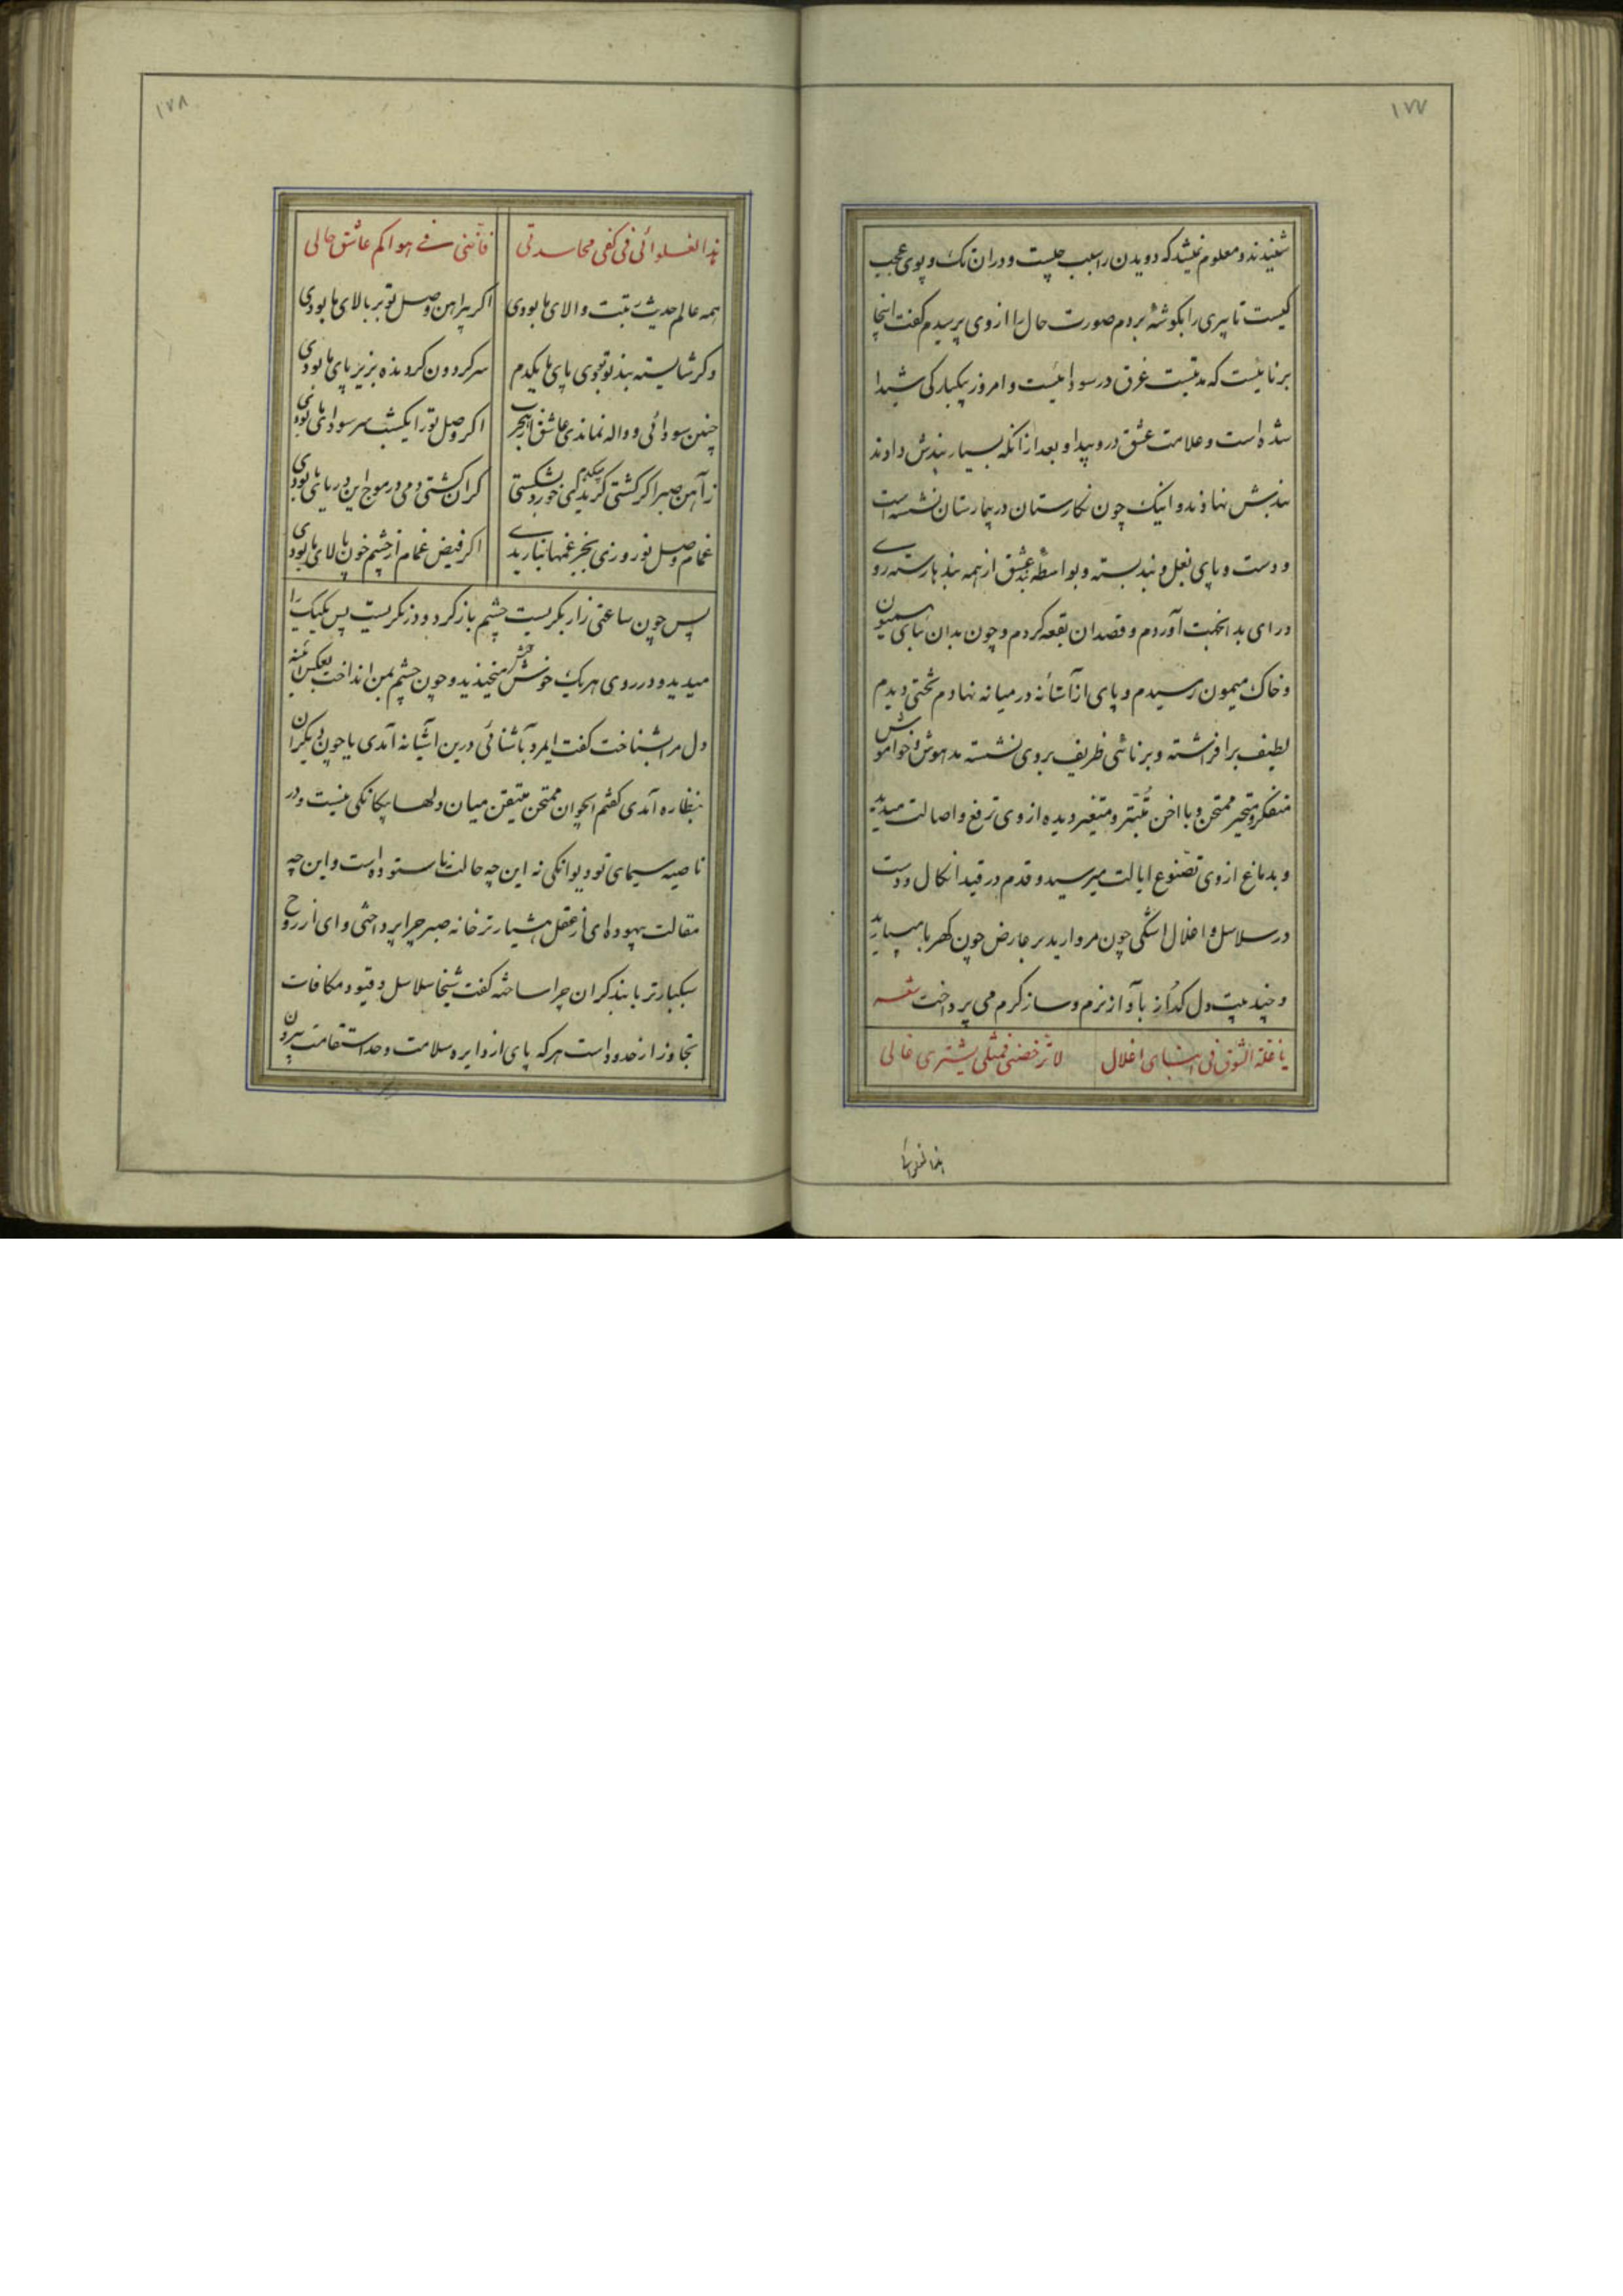 ۱۷۷
شنیدند و معلوم نمیشد که دویدن را سبب چیست و در ان تک و پوی عجیب
کیست تا پیری را بگوشهٔ بردم صورت حال را از وی پرسیدم گفت اینجا
برنائیست که مدتیست غرق در سودائیست و امروز بیکبارگی شیدا
شده است و علامت عشق درو پیدا و بعد از انکه بسیار پندش دادند
بندبش نهادند و اینک چون نگارستان در بیمارستان نشسته است
و دست و پای بغل و بند بسته و بواسطه بند عشق از همه بندها رسته روی
در ای بد انخمت آوردم و قصد ان بقعه کردم و چون بدان بنای همیون
و خاک میمون رسیدم و پای از آستانه در میانه نهادم تختی دیدم
لطیف برافراشته و برنائی ظریف بروی نشسته مدهوش و خواموش
متفکر و متحیر ممتحن و با اخن متبتر و متغیر دیده از وی ترفع و اصالت میدید
و بدماغ از وی تضوع ایالت میرسید و قدم در قید انکال و دست
در سلاسل و اغلال اشکی چون مروارید بر عارض چون کهربا میبارید
و چند بیت دل گداز بآواز نرم و ساز گرم می پرداخت شعر
یا غلة الشوق فی اشبای اغلال لا ترخصنی فمثلی یشتری غالی
۱۷۸
فأننی فی هواکم عاشق حالی
همه عالم حدیث رتبت والای ما بودی اگر پیراهن وصل تو بر بالای ما بودی
وگر شایسته بند تو بودی پای ما یکدم سر گردون گردنده بزیر پای ما بودی
چنین سودائی و واله نماندی عاشق ابجر اگر وصل تو را یکشب سر سودای ما بودی
ز آهن صبر اگر کشتی گر یکدم کی خورد شکستی گر ان کشتی دمی در موج این دریای ما بودی
غمام وصل تو روزی بجز غمها نباریدی اگر فیض غمام از چشم خون پالای ما بودی
پس چون ساعتی زار بگریست چشم باز کرد و در نگریست پس یکیک را
میدید و در روی هر یک خوش خوش میخندید و چون چشم بمن انداخت بعکس آئینه
دل مرا بشناخت گفت ایمرد بآشنائی درین آشیانه آمدی یا چون دیگران
بنظاره آمدی گفتم ایجوان ممتحن متیقن میان دلها بیگانگی نیست و در
ناصیه سیمای تو دیوانگی نه این چه حالت ناستوده است و این چه
مقالت بیهوده ای از عقل هشیارتر خانه صبر چرا پرداختی و ای از روح
سبکبارتر با بند گران چرا ساختی گفت شیخا سلاسل و قیود مکافات
تجاوز از حدود است هر که پای از دایره سلامت و حد استقامت بیرون